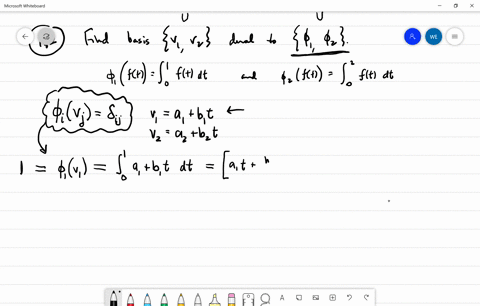 Microsoft Whiteboard
Find basis {v₁, v₂} dual to {ϕ₁, ϕ₂}.
ϕ₁(f(t)) = ∫₀¹ f(t) dt and ϕ₂(f(t)) = ∫₀² f(t) dt
ϕᵢ(vⱼ) = δᵢⱼ v₁ = a₁ + b₁t ←
v₂ = a₂ + b₂t
1 = ϕ₁(v₁) = ∫₀¹ a₁ + b₁t dt = [a₁t +
WE